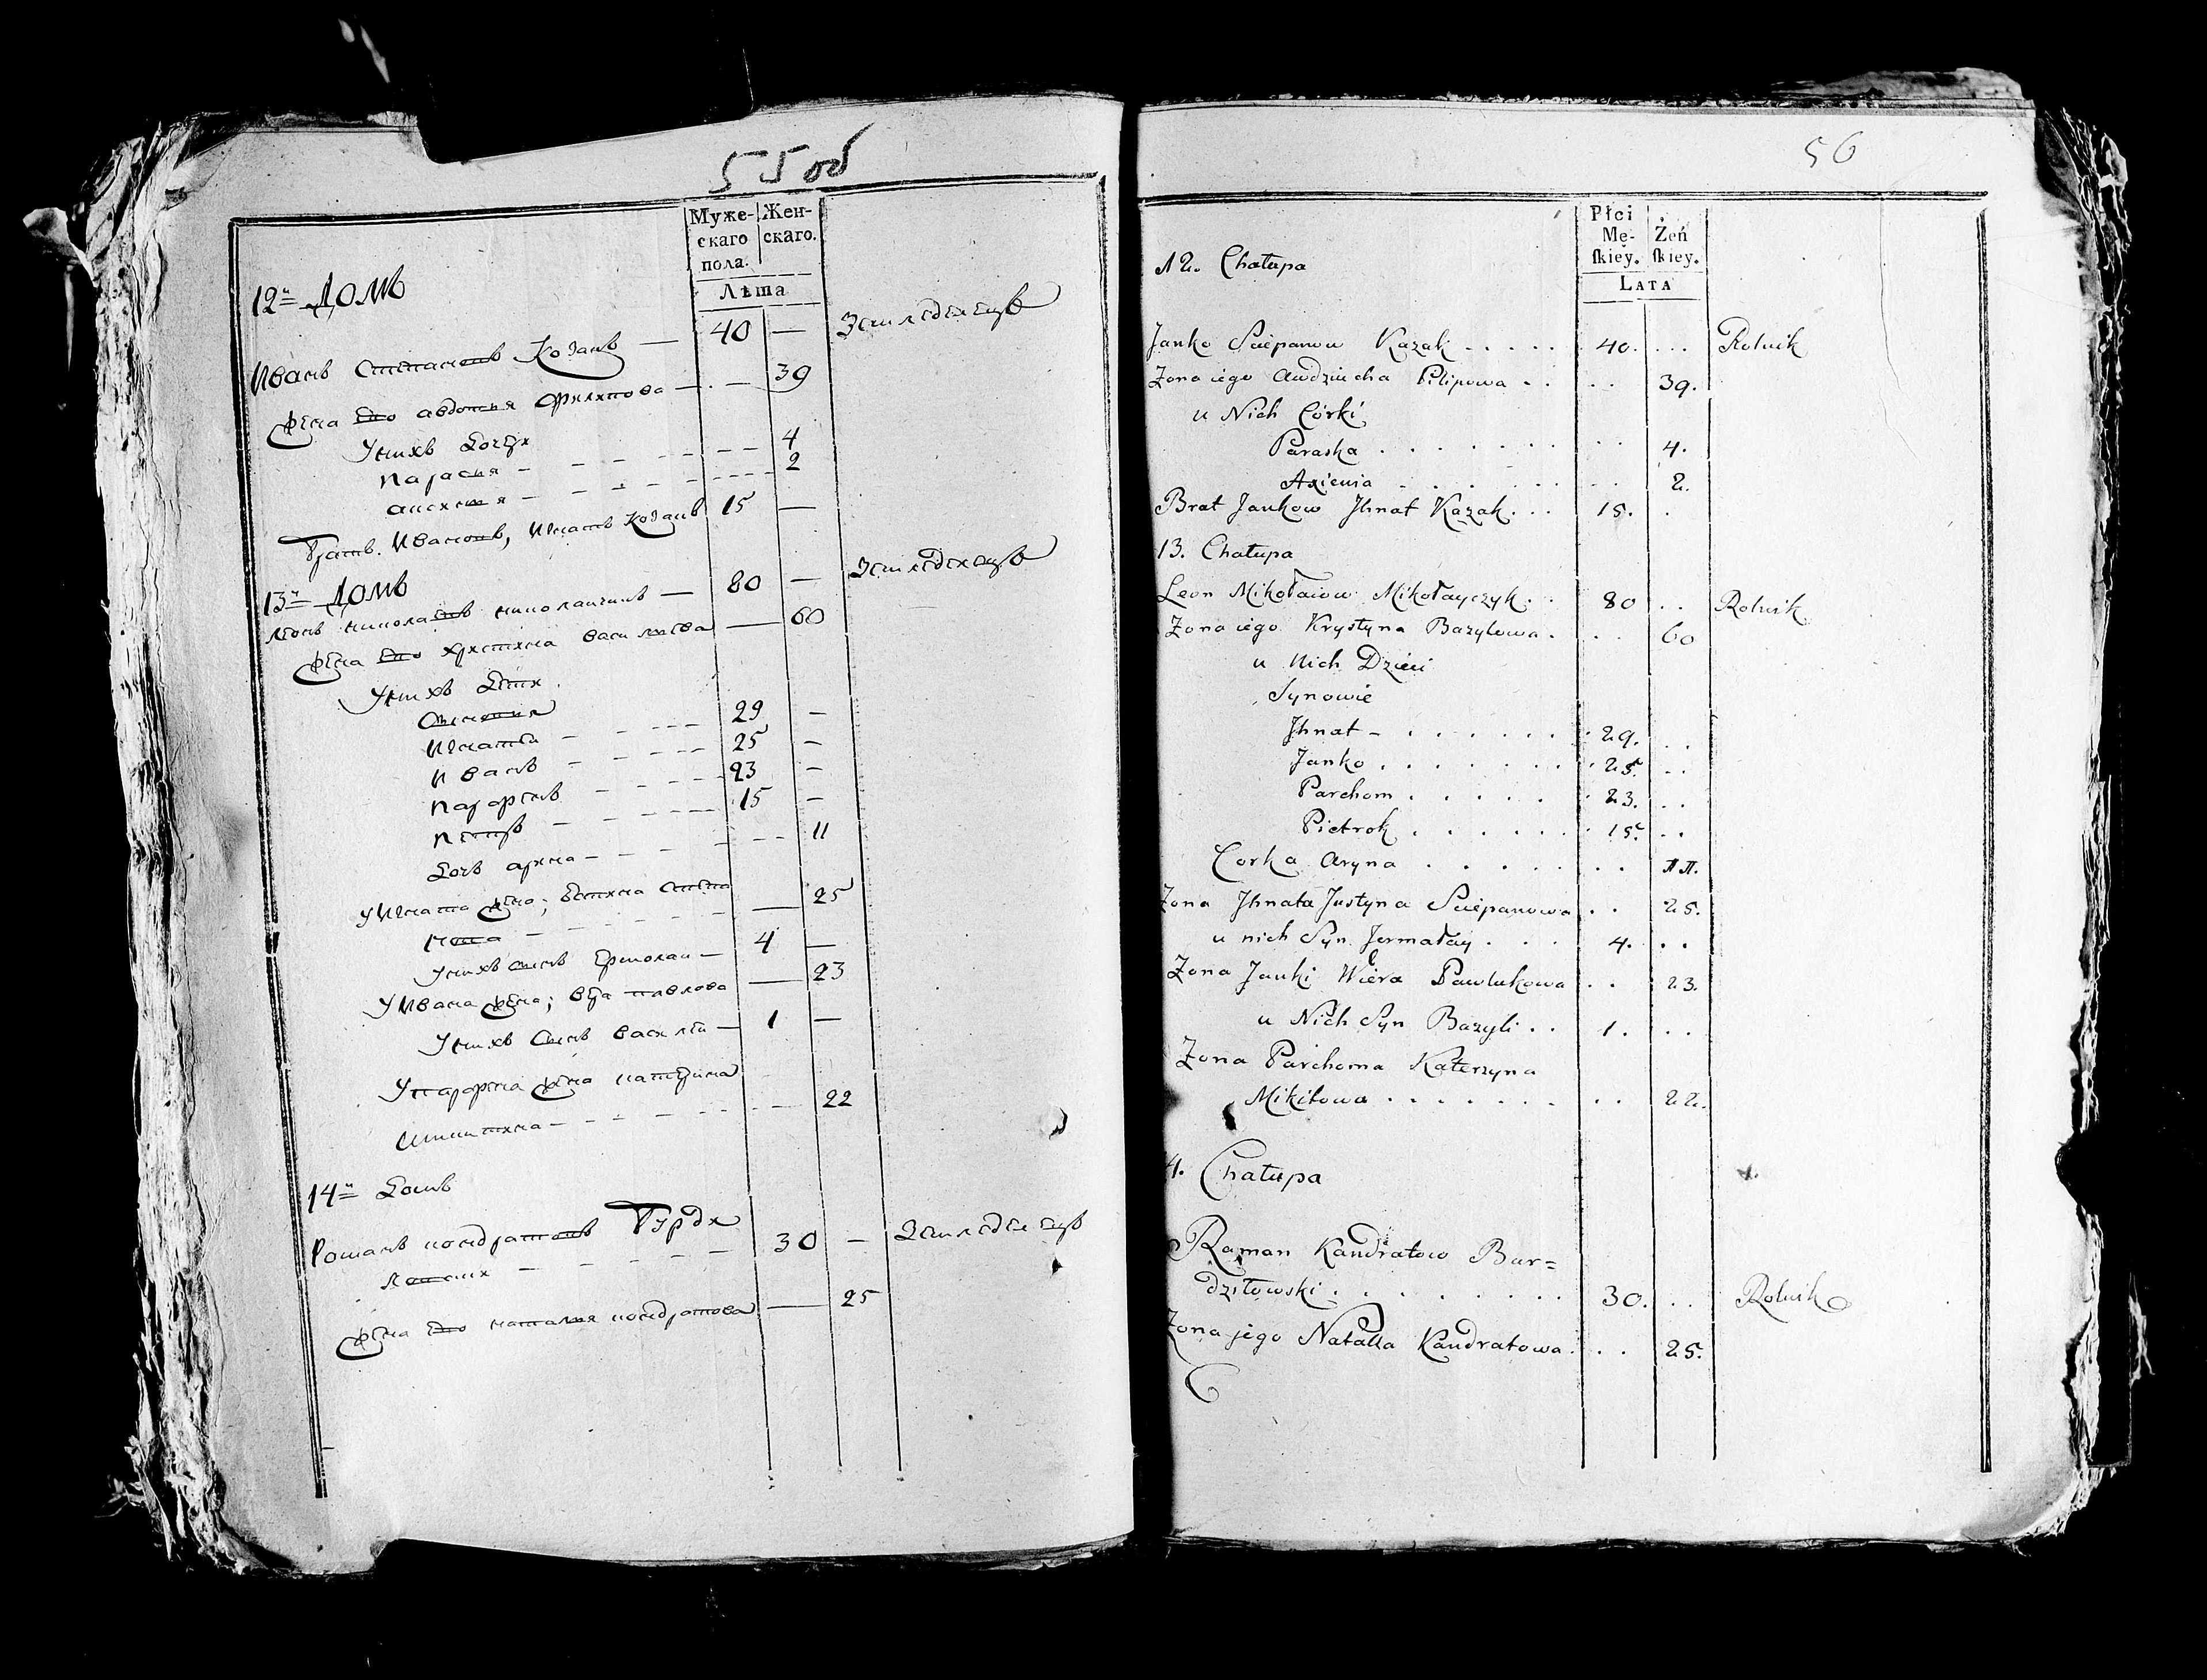 55 об
Муже-
скаго
пола.
Жен-
скаго.
Лѣта
12й Домъ
Иванъ Степановъ Козакъ — 40 — Земледелецъ
Жена его Авдотья Филипова — 39
Унихъ дочери
Парасия 4
2
Братъ Ивановъ, Игнатъ Козакъ 15 —
13й Домъ
Леонъ Миколаевъ Миколаичикъ — 80 — Земледелецъ
Жена его Христина Василиева — 60
Унихъ дети
Сыновия
Игнатей 29 —
Иванъ 25 —
Парфенъ 23 —
Петръ 15 —
Дочь Арина 11
У Игната жена; Естина Степа
нова — 25
Унихъ сынъ Ермолай — 4 —
У Ивана жена; Вера Павлова — 23
Унихъ сынъ Василей — 1 —
У Парфена жена Катерина
Микитина 22
14й Домъ
Романъ Кондратовъ Бурди
30 — Земледелецъ
Жена его Наталия Кондратова — 25
56
Płci
Mę-
ſkiey.
Żeń
ſkiey.
LATA
12. Chałupa
Janko Sciepanow Kazak . . . . . 40. . . . Rolnik
Zona iego Awdziucha Pilipowa . . . . 39.
u Nich Córki
Paraska . . . . . . . . 4.
Axienia . . . . . . . . 2.
Brat Jankow Jhnat Kazak. . . 15. .
13. Chałupa
Leon Mikołaiow Mikołayczyk. . 80 . . Rolnik
Zona iego Krystyna Bazylowa. . . 60
u Nich Dzieci
Synowie
Jhnat - . . . . . . . 29. . .
Janko . . . . . . . . 25. . .
Parchom . . . . . . 23. . .
Pietrok . . . . . . 15. . .
Corka Aryna . . . . . . . 11.
Zona Jhnata Justyna Sciepanowa . . 25.
u nich Syn Jermałay . . . 4. . .
Zona Janki Wiera Pawlukowa . . 23.
u Nich Syn Bazyli . . 1. . .
Zona Parchoma Katerzyna
Mikitowa . . . . . . . . . 22.
4. Chałupa
Raman Kandratow Bur=
dziłowski . . . . . . . . . 30. . . Rolnik
Zona jego Natalla Kandratowa . . . 25.